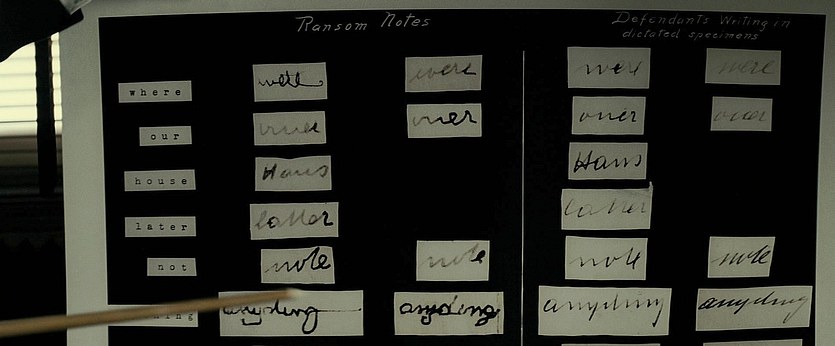 Ransom Notes
Defendants Writing in
dictated specimens
where were were were were
our ouer ouer ouer
house Haus Haus
later latter latter
not note note note note
anyding anyding anyding anyding